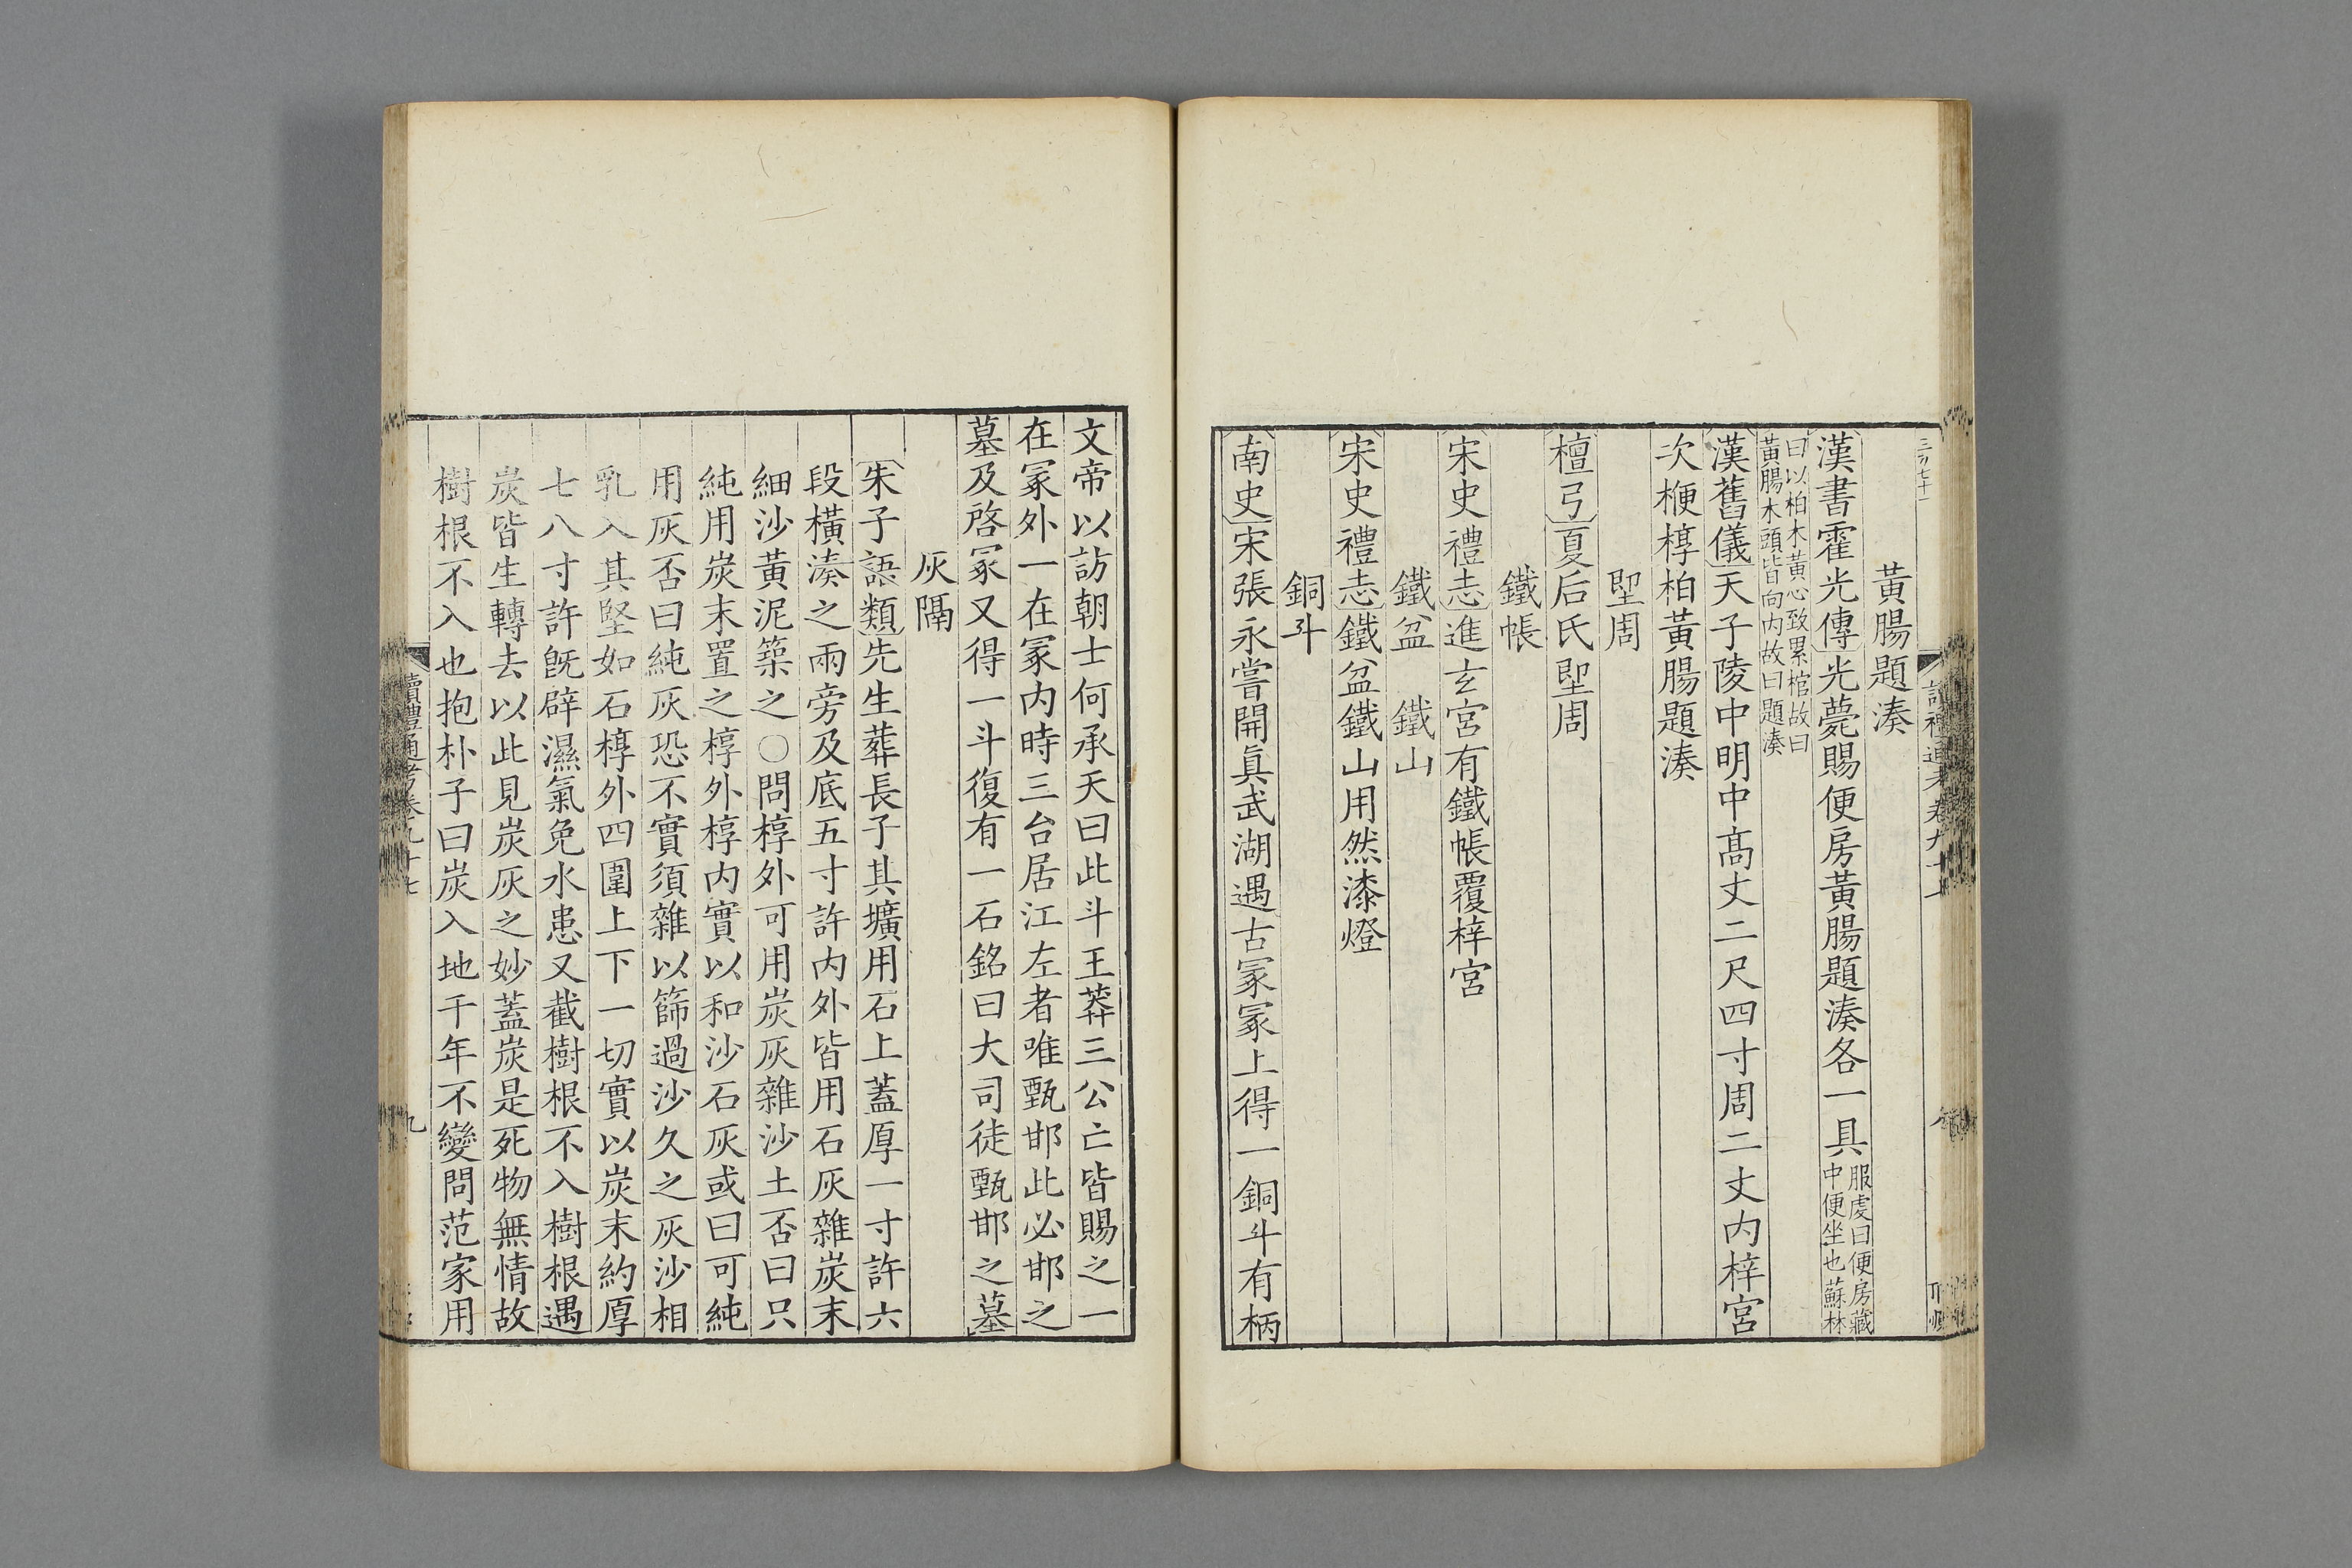 黃腸題湊
漢書霍光傳光薨賜便房黃腸題湊各一具服虔曰便房藏中便坐也蘇林
曰以柏木黃心致累棺故曰黃腸木頭皆向內故曰題湊
漢舊儀天子陵中明中高丈二尺四寸周二丈內梓宮
次楩椁柏黃腸題湊
堲周
檀弓夏后氏堲周
鐵帳
宋史禮志進玄宮有鐵帳覆梓宮
鐵盆 鐵山
宋史禮志鐵盆鐵山用然漆燈
銅斗
南史宋張永嘗開眞武湖遇古冢冢上得一銅斗有柄
文帝以訪朝士何承天曰此斗王莽三公亡皆賜之一
在冢外一在冢內時三台居江左者唯甄邯此必邯之
墓及啓冢又得一斗復有一石銘曰大司徒甄邯之墓
灰隔
朱子語類先生葬長子其壙用石上蓋厚一寸許六
段橫湊之兩旁及底五寸許內外皆用石灰雜炭末
細沙黃泥築之○問椁外可用炭灰雜沙土否曰只
純用炭末置之椁外椁內實以和沙石灰或曰可純
用灰否曰純灰恐不實須雜以篩過沙久之灰沙相
乳入其堅如石椁外四圍上下一切實以炭末約厚
七八寸許旣辟濕氣免水患又截樹根不入樹根遇
炭皆生轉去以此見炭灰之妙蓋炭是死物無情故
樹根不入也抱朴子曰炭入地千年不變問范家用
讀禮通考卷九十七
九